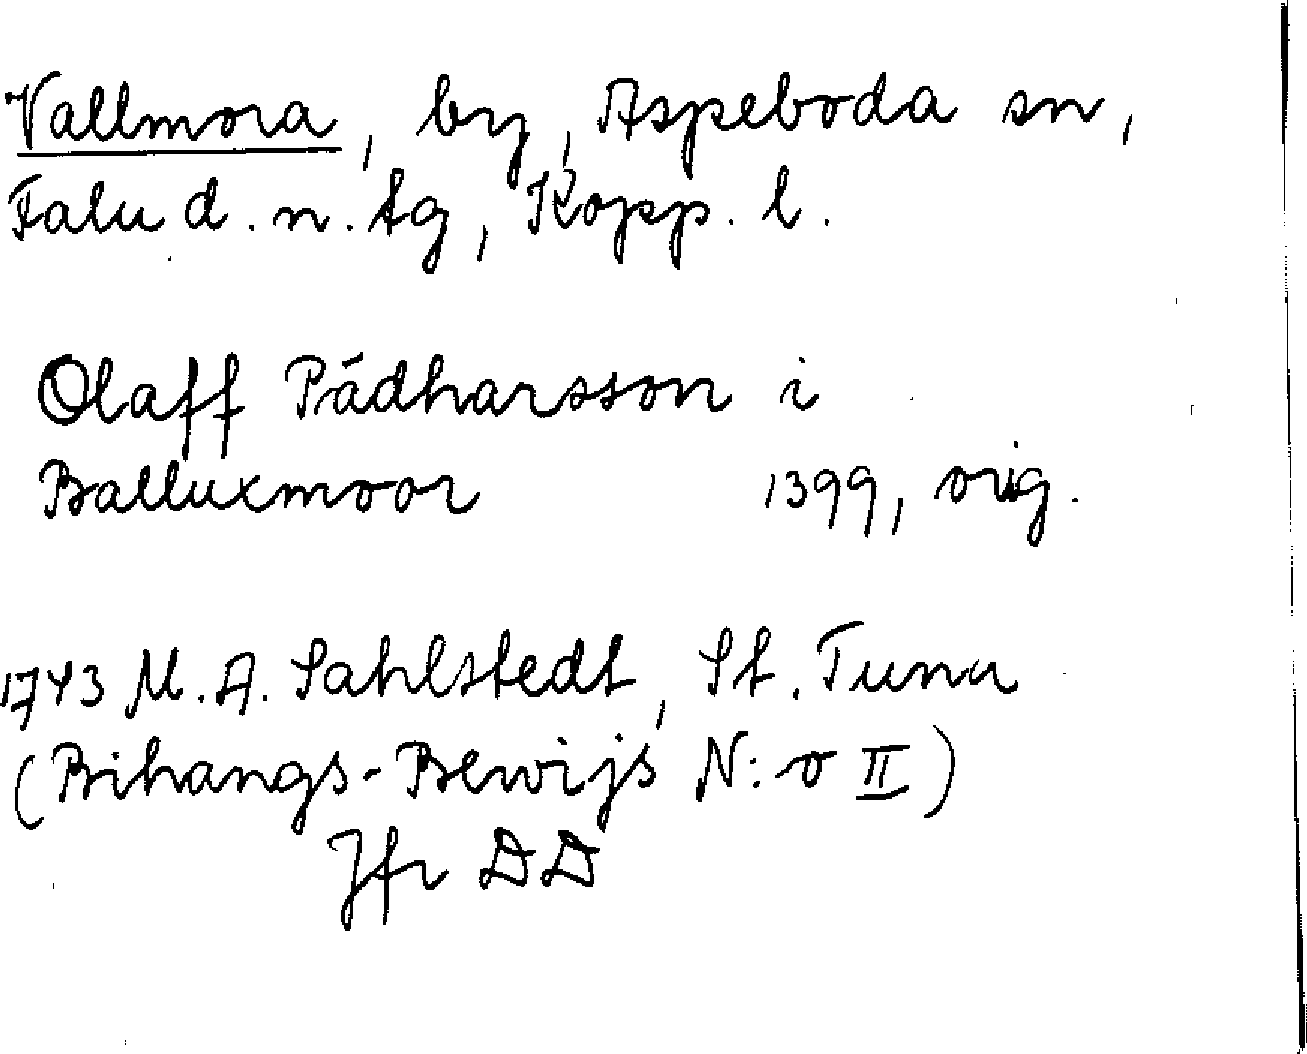 Vallmora, by, Aspeboda sn,
Falu d. n. tg, Kopp. l.
Olaff Pádharsson i
Balluxmoor 1399, orig.
1743 M. A. Sahlstedt, St. Tuna
(Bihangs-Bewijs N:o II)
Jfr DD